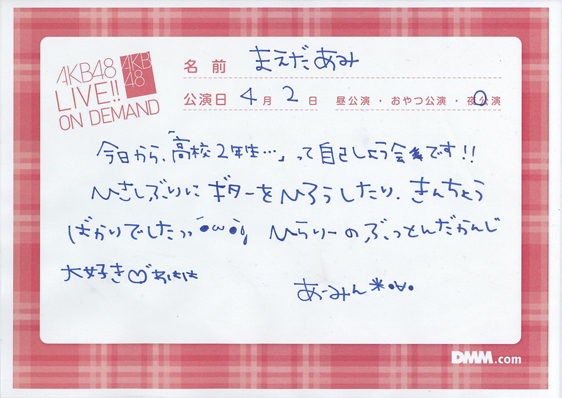 AKB48
LIVE!!
ON DEMAND
AKB
48
名前 まえだあみ
公演日 4月2日 昼公演・おやつ公演・夜公演
今日から、「高校2年生…」って自己しょう会です!!
ひさしぶりに ギターをひろうしたり、きんちょう
ばかりでしたっっ ひらりーのぶっとんだかんじ
大好き♡あはは
あーみん
DMM.com